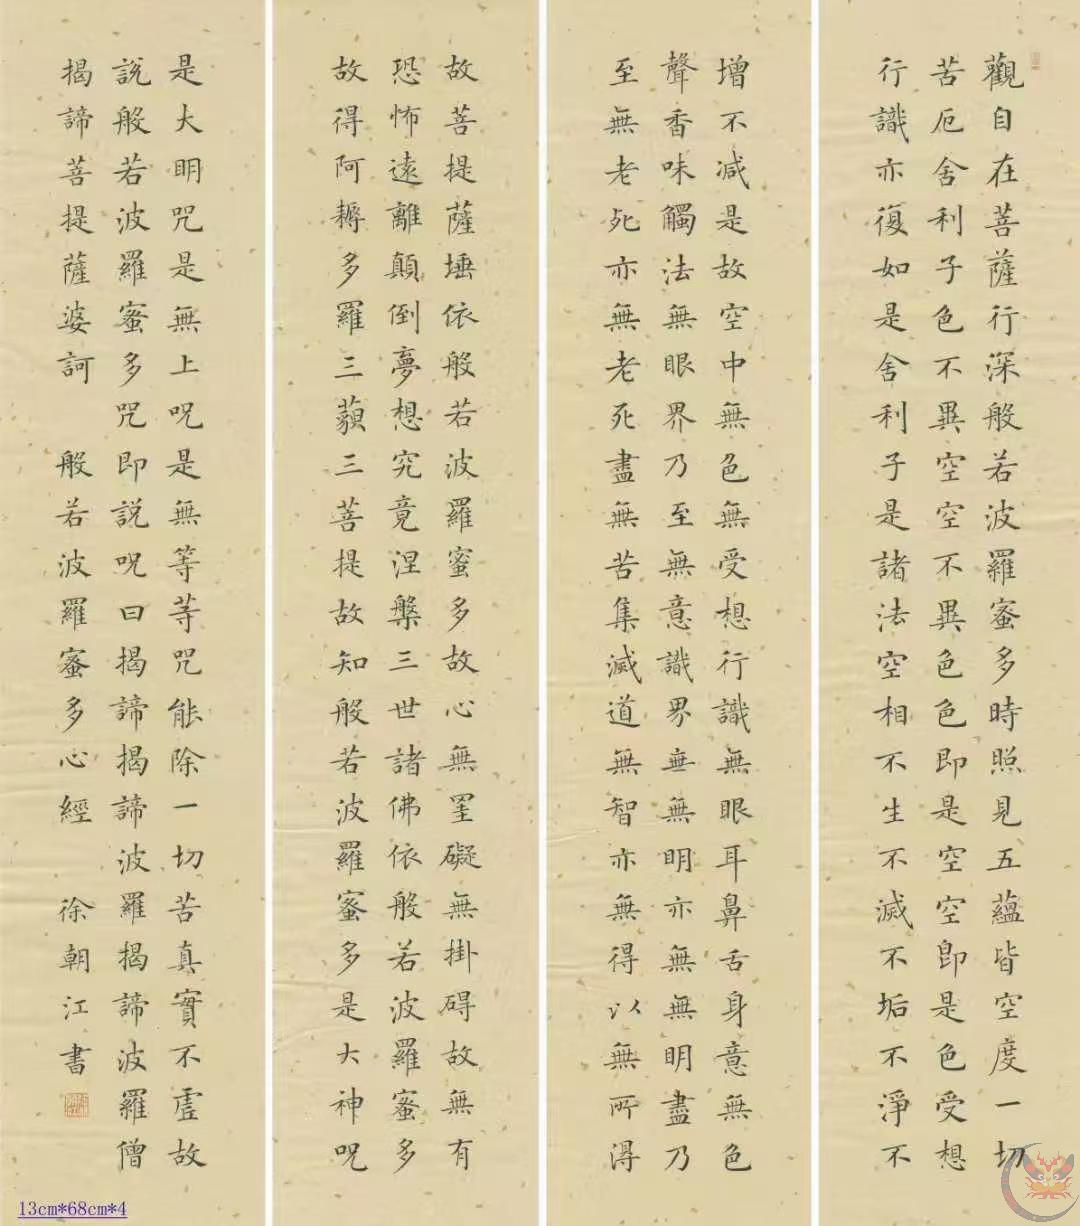 觀自在菩薩行深般若波羅蜜多時照見五蘊皆空度一切
苦厄舍利子色不異空空不異色色即是空空即是色受想
行識亦復如是舍利子是諸法空相不生不滅不垢不淨不
增不减是故空中無色無受想行識無眼耳鼻舌身意無色
聲香味觸法無眼界乃至無意識界無無明亦無無明盡乃
至無老死亦無老死盡無苦集滅道無智亦無得以無所得
故菩提薩埵依般若波羅蜜多故心無罣礙無掛碍故無有
恐怖遠離顛倒夢想究竟涅槃三世諸佛依般若波羅蜜多
故得阿耨多羅三藐三菩提故知般若波羅蜜多是大神咒
是大明咒是無上呪是無等等咒能除一切苦真實不虛故
說般若波羅蜜多咒即説呪曰揭諦揭諦波羅揭諦波羅僧
揭諦菩提薩婆訶 般若波羅蜜多心經 徐朝江書
13cm*68cm*4